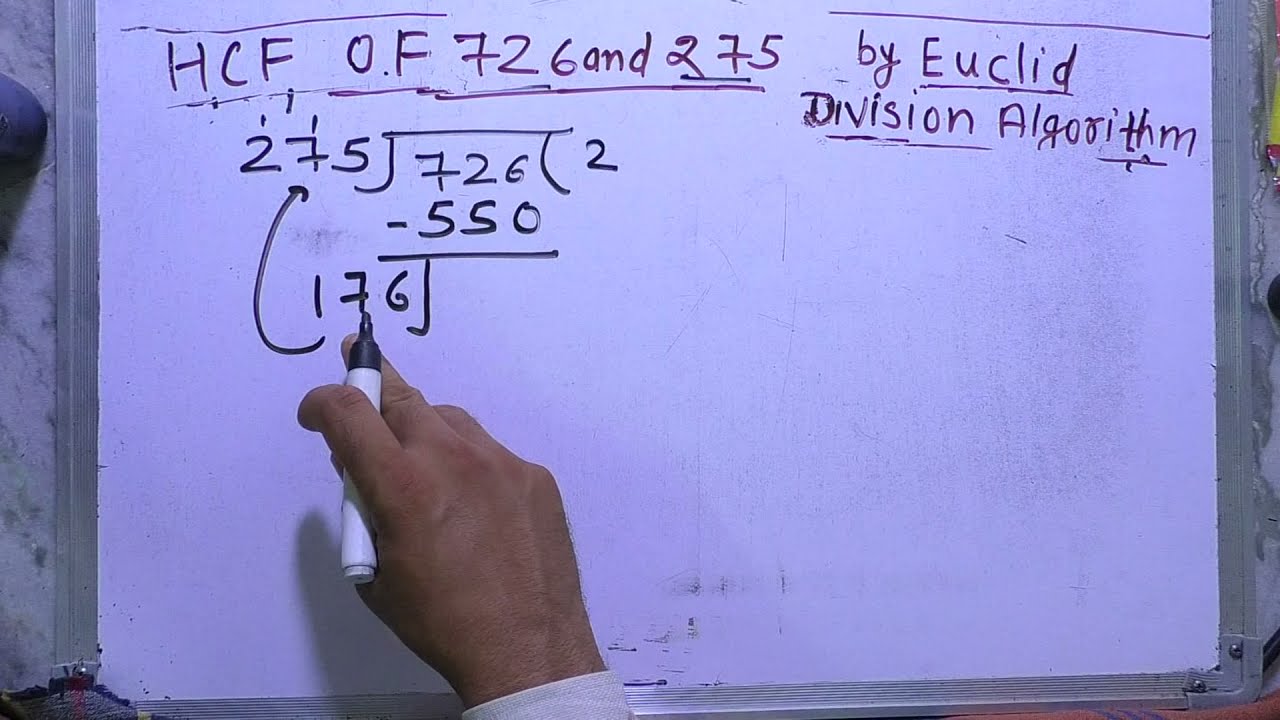 HCF O.F 726 and 275 by Euclid
Division Algorithm
275)726(2
-550
176)